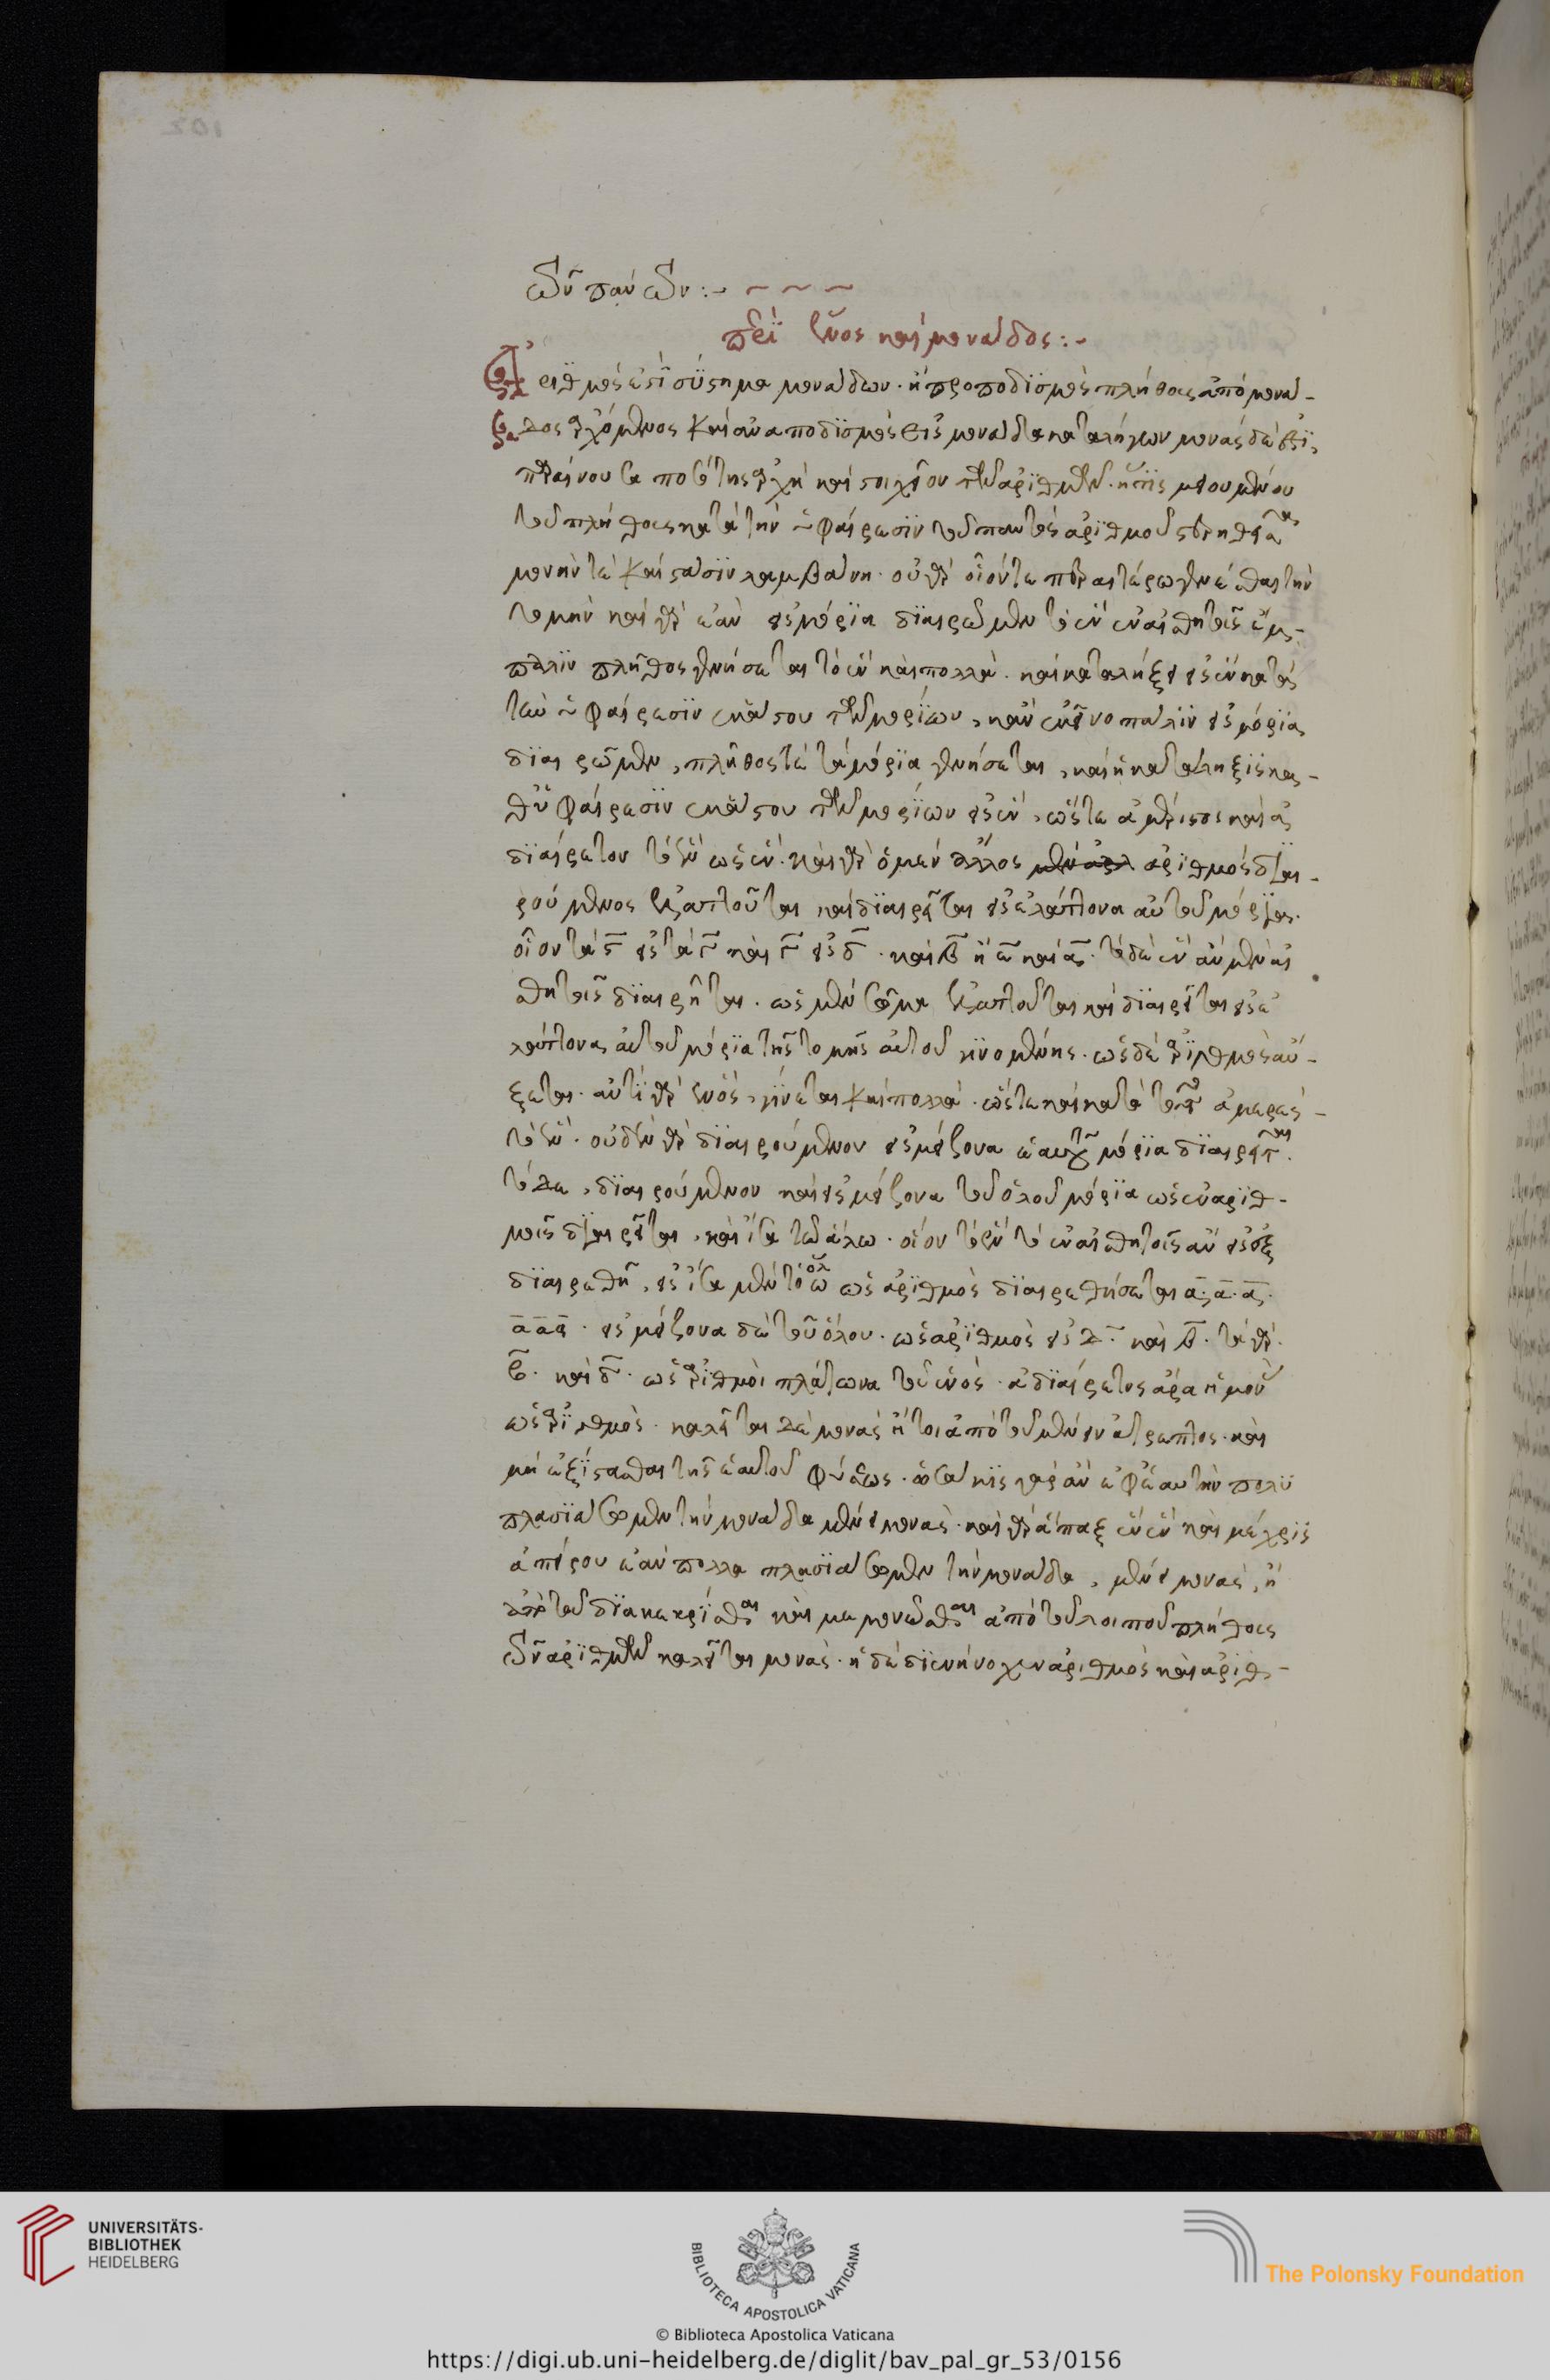 τῶν πάντων :-
περὶ ἑνὸς καὶ μονάδος :-
Ἀριθμός ἐστι σύστημα μονάδων. ἢ προποδισμὸς πλήθους ἀπὸ μονά-
δος ἀρχόμενος καὶ ἀναποδισμὸς εἰς μονάδα καταλήγων μονὰς δέ ἐστι
περαίνουσα ποσότης ἀρχὴ καὶ στοιχεῖον τῶν ἀριθμῶν. ἥτις μειουμένου
τοῦ πλήθους κατὰ τὴν ὑφαίρεσιν τοῦ παντὸς ἀριθμοῦ στερηθεῖσα
μονήν τε καὶ στάσιν λαμβάνει. οὐ γὰρ οἷόν τε περαιτέρω γενέσθαι τὴν
τομὴν καὶ γὰρ ἐὰν εἰς μόρια διαιρῶμεν τὸ ἓν ἐν αἰσθητοῖς ἔμ-
παλιν πλῆθος γενήσεται τὸ ἓν καὶ πολλά. καὶ καταλήξει εἰς ἓν κατὰ
τὴν ὑφαίρεσιν ἑκάστου τῶν μορίων, κἂν ἐκεῖνο πάλιν εἰς μόρια
διαιρῶμεν, πλῆθός τε τὰ μόρια γενήσεται, καὶ ἡ κατάληξις κα-
θ' ὑφαίρεσιν ἑκάστου τῶν μορίων εἰς ἕν, ὥστε ἀμέριστον καὶ ἀ
διαίρετον τὸ ἓν ὡς ἕν. καὶ γὰρ ὁ μὲν ἄλλος ἀριθμὸς διαι-
ρούμενος ἐλαττοῦται καὶ διαιρεῖται εἰς ἐλάττονα αὐτοῦ μόρια.
οἷον τὰ ϛ εἰς τὰ γ καὶ γ εἰς δ. καὶ β ἢ ε καὶ α. τὸ δὲ ἓν ἂν μὲν αἰ
σθητοῖς διαιρῆται. ὡς μὲν σῶμα ἐλαττοῦται καὶ διαιρεῖται εἰς ἐ
λάττονα αὐτοῦ μόρια τῆς τομῆς αὐτοῦ γινομένης. ὡς δὲ ἀριθμὸς αὔ-
ξεται. ἀντὶ γὰρ ἑνὸς, γίνεται καὶ πολλά. ὥστε καὶ κατὰ τοῦτο ἀμερὲς
τὸ ἕν. οὐδὲν γὰρ διαιρούμενον εἰς μείζονα ἑαυτοῦ μόρια διαιρεῖται.
τὸ δὲ, διαιρούμενον καὶ εἰς μείζονα τοῦ ὅλου μόρια ὡς ἐν ἀριθ-
μοῖς διαιρεῖται, καὶ ἴσα τῷ ὅλῳ. οἷον τὸ ἓν τὸ ἐν αἰσθητοῖς ἂν εἰς ἓξ
διαιρεθῇ, εἰς ἴσα μὲν τῷ ὅλῳ ὡς ἀριθμὸς διαιρεθήσεται α. α. α.
α α α. εἰς μείζονα δὲ τοῦ ὅλου. ὡς ἀριθμὸς εἰς δ. καὶ β. τὰ γὰρ.
β. καὶ δ. ὡς ἀριθμοὶ πλείονα τοῦ ἑνός. ἀδιαίρετος ἄρα ἡ μονὰς
ὡς ἀριθμός. καλεῖται δὲ μονὰς ἤτοι ἀπὸ τοῦ μένειν ἄτρεπτος. καὶ
μὴ ἐξίστασθαι τῆς ἑαυτοῦ φύσεως. ὁσάκις γὰρ ἂν ἐφ' ἑαυτὴν πολυ
πλασιάσωμεν τὴν μονάδα μένει μονάς. καὶ γὰρ ἅπαξ ἓν ἓν καὶ μέχρις
ἀπείρου ἐὰν πολλαπλασιάσωμεν τὴν μονάδα, μένει μονὰς, ἢ
ἀπὸ τοῦ διακεκρίσθαι καὶ μεμονῶσθαι ἀπὸ τοῦ λοιποῦ πλήθους
τῶν ἀριθμῶν καλεῖται μονάς. ᾗ δὲ διενήνοχεν ἀριθμὸς καὶ ἀριθ-
UNIVERSITÄTS-
BIBLIOTHEK
HEIDELBERG
BIBLIOTECA APOSTOLICA VATICANA
The Polonsky Foundation
© Biblioteca Apostolica Vaticana
https://digi.ub.uni-heidelberg.de/diglit/bav_pal_gr_53/0156